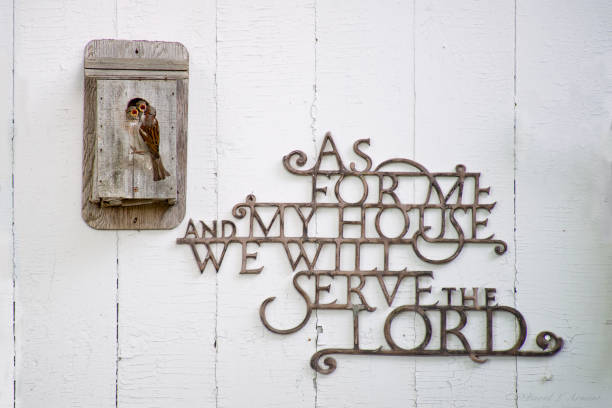 AS
FOR ME
AND MY HOUSE
WE WILL
SERVE THE
LORD